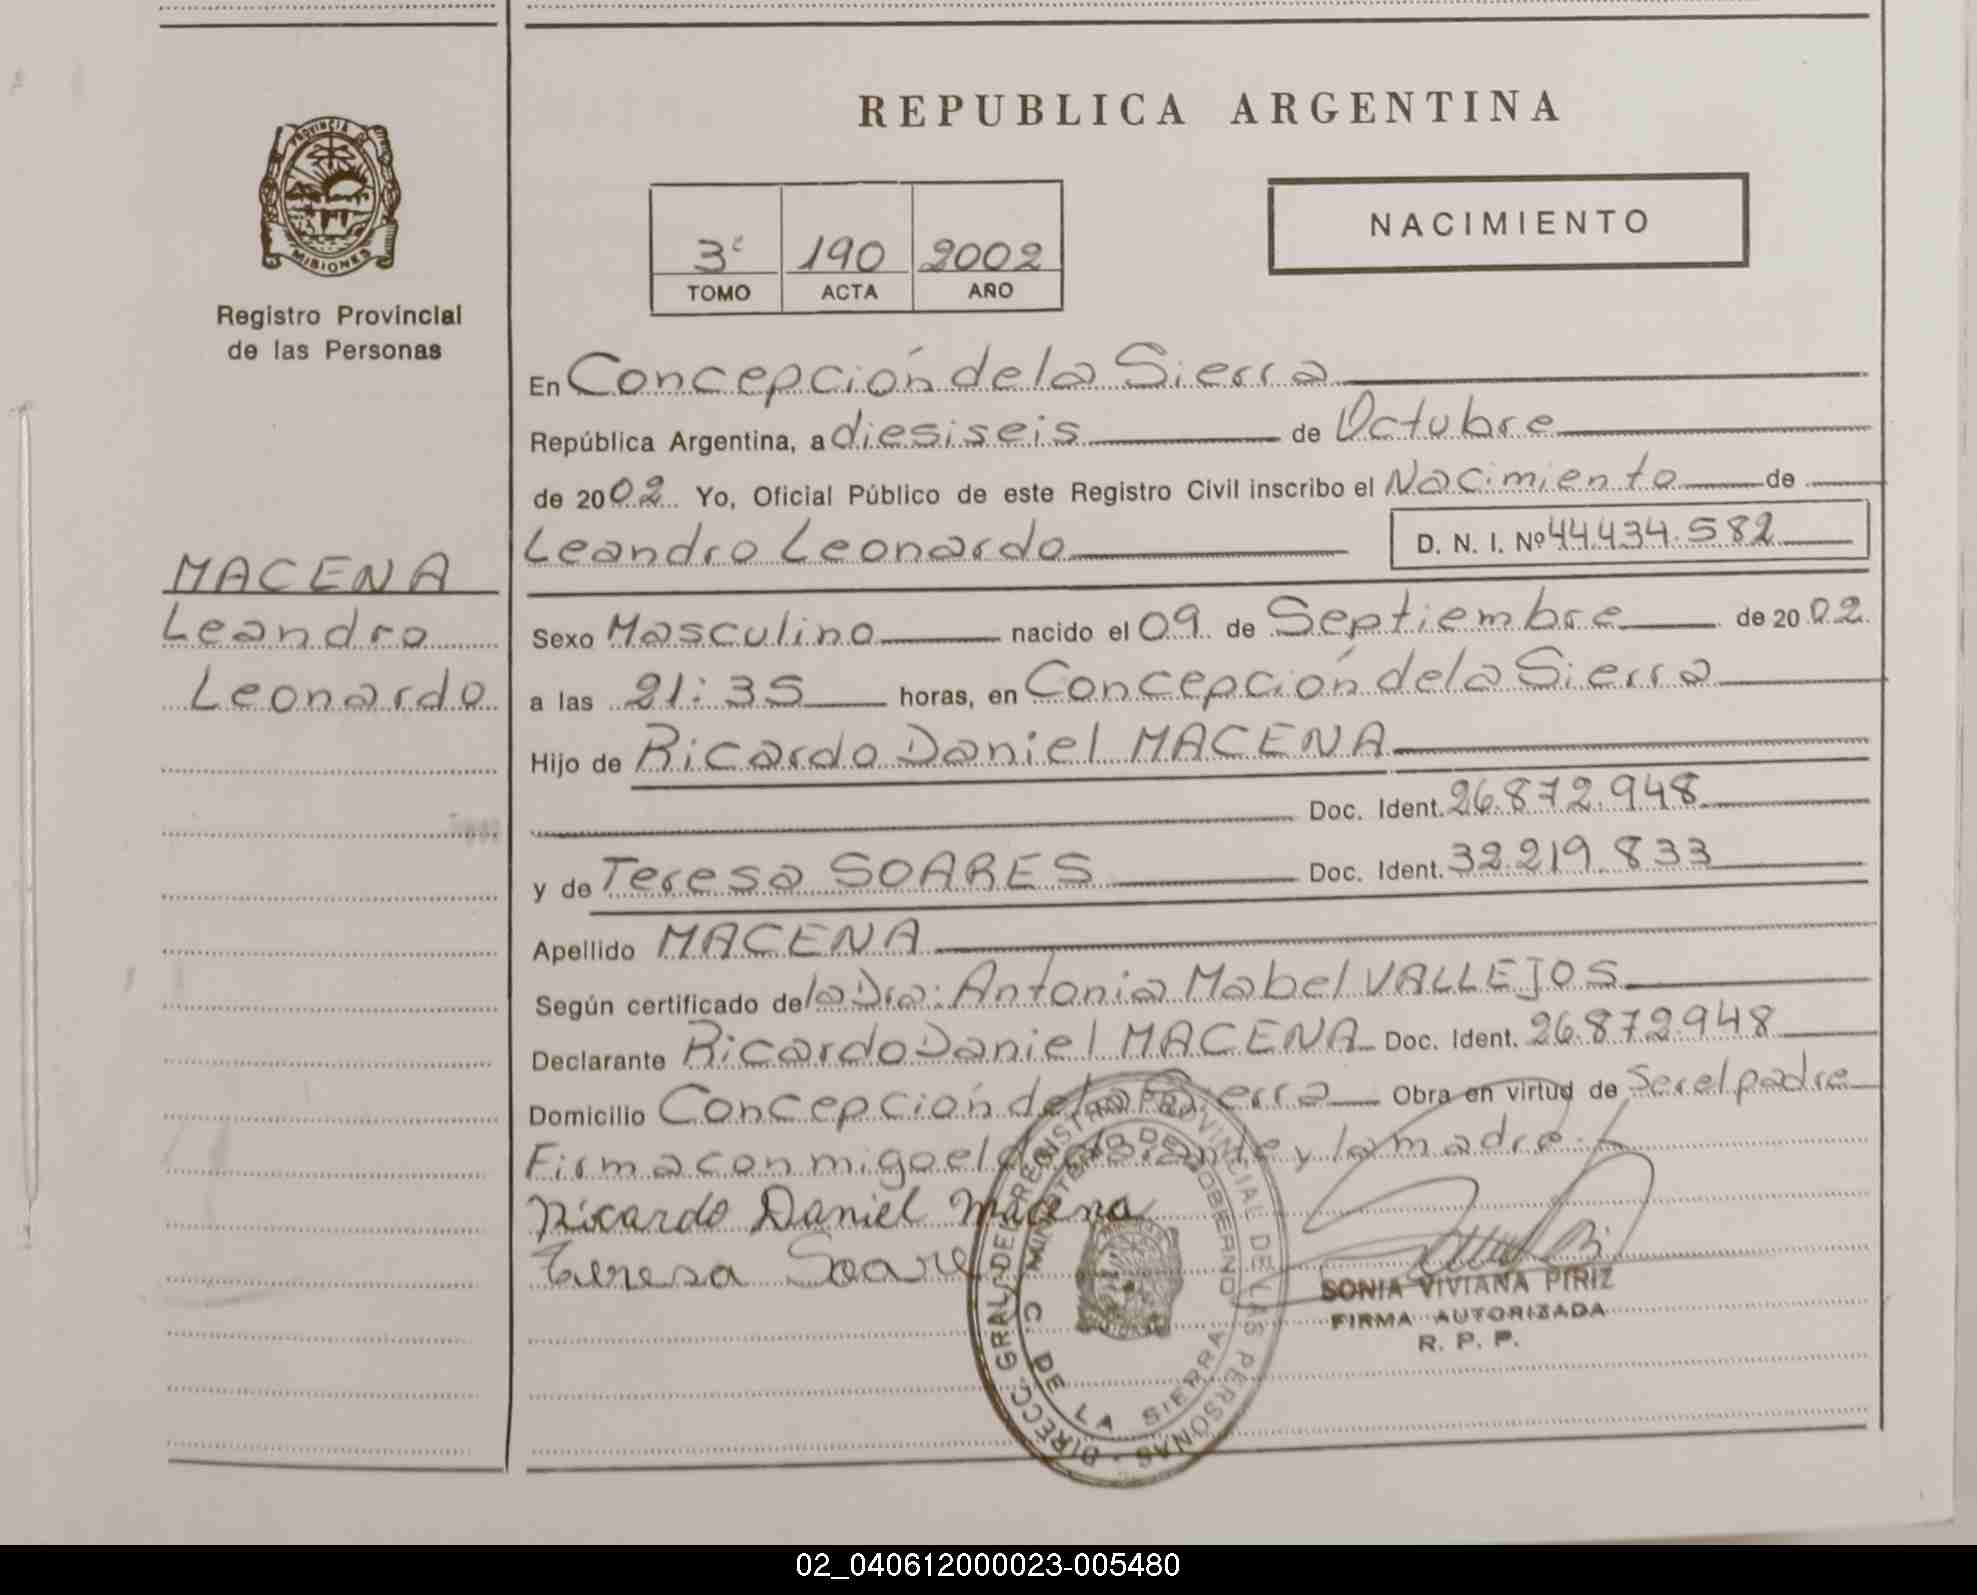 REPUBLICA ARGENTINA
PROVINCIA DE
MISIONES
Registro Provincial
de las Personas
3º 190 2002
TOMO ACTA AÑO
NACIMIENTO
En Concepción de la Sierra
República Argentina, a diesiseis de Octubre
de 2002 Yo, Oficial Público de este Registro Civil inscribo el Nacimiento de
Leandro Leonardo D. N. I. Nº 44.434.582
MACENA
Leandro
Leonardo
Sexo Masculino nacido el 09 de Septiembre de 2002
a las 21:35 horas, en Concepción de la Sierra
Hijo de Ricardo Daniel MACENA
Doc. Ident. 26.872.948
y de Teresa SOARES Doc. Ident. 32.219.833
Apellido MACENA
Según certificado de la Dra: Antonia Mabel VALLEJOS
Declarante Ricardo Daniel MACENA Doc. Ident. 26.872.948
Domicilio Concepción de la Sierra Obra en virtud de Ser el padre
Firma conmigo el declarante y la madre.
Ricardo Daniel Macena
Teresa Soare
DIRECC. GRAL. DEL REGISTRO PROVINCIAL DE LAS PERSONAS
MINISTERIO DE GOBIERNO
C. DE LA SIERRA
SONIA VIVIANA PIRIZ
FIRMA AUTORIZADA
R. P. P.
02_040612000023-005480